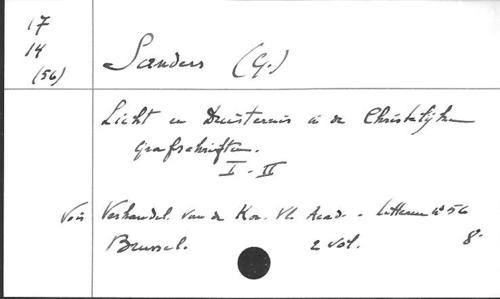 17
14
(56)
Sanders (G.)
Licht en Duisternis in de Christelijke
Grafschriften.
I - II
Voir Verhandel. van de Kon. Vl. Acad. - Letteren n° 56
Brussel. 2 vol. 8.